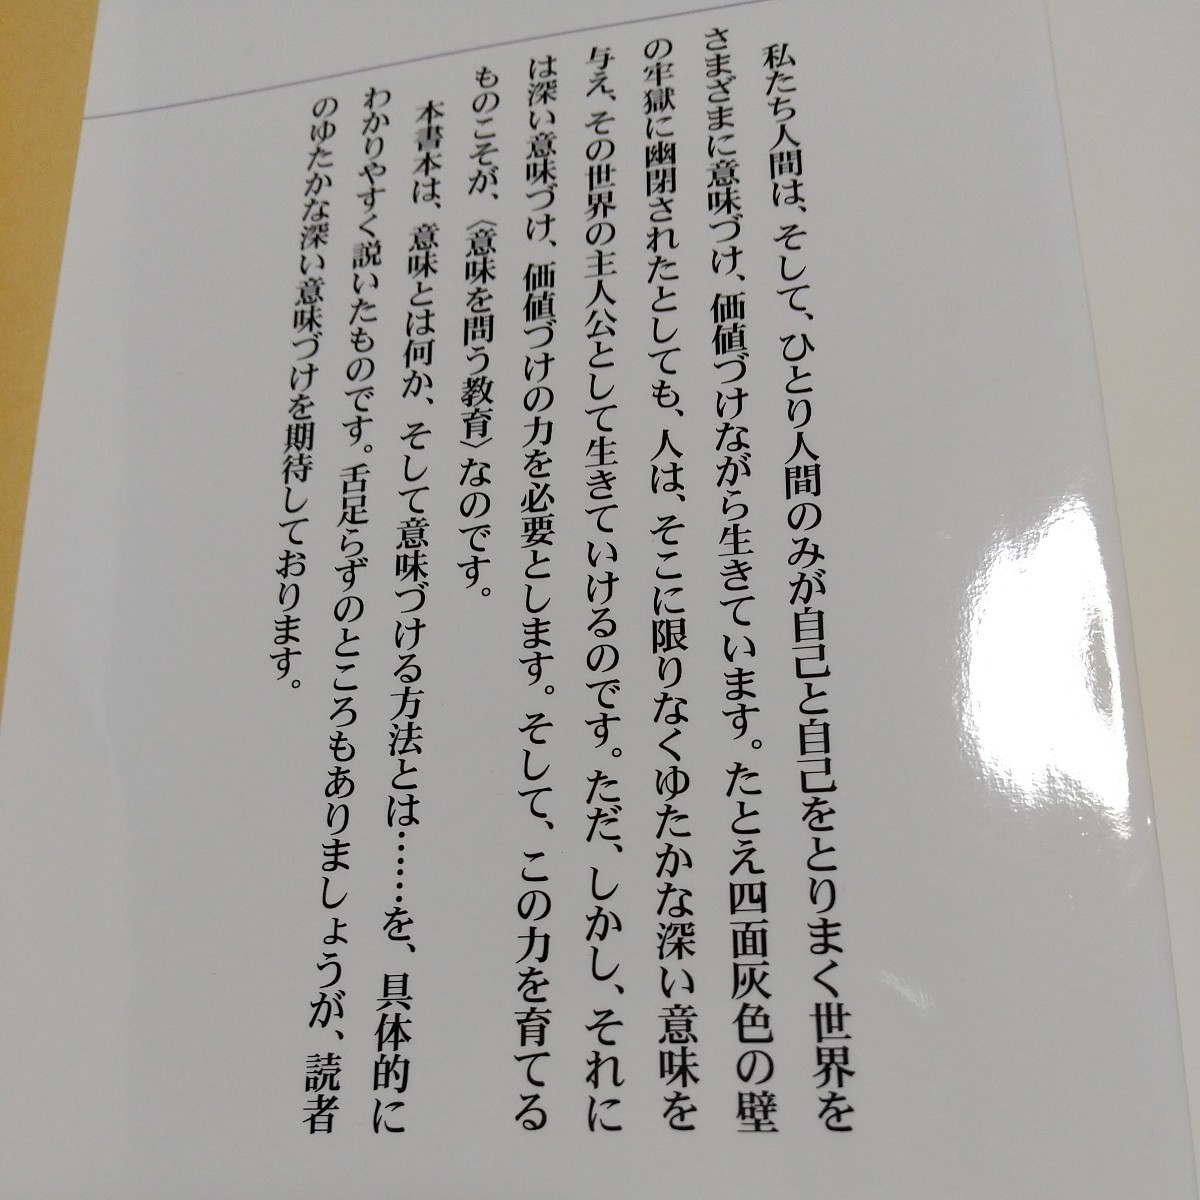 私たち人間は、そして、ひとり人間のみが自己と自己をとりまく世界を
さまざまに意味づけ、価値づけながら生きています。たとえ四面灰色の壁
の牢獄に幽閉されたとしても、人は、そこに限りなくゆたかな深い意味を
与え、その世界の主人公として生きていけるのです。ただ、しかし、それに
は深い意味づけ、価値づけの力を必要とします。そして、この力を育てる
ものこそが、〈意味を問う教育〉なのです。
本書本は、意味とは何か、そして意味づける方法とは……を、具体的に
わかりやすく説いたものです。舌足らずのところもありましょうが、読者
のゆたかな深い意味づけを期待しております。